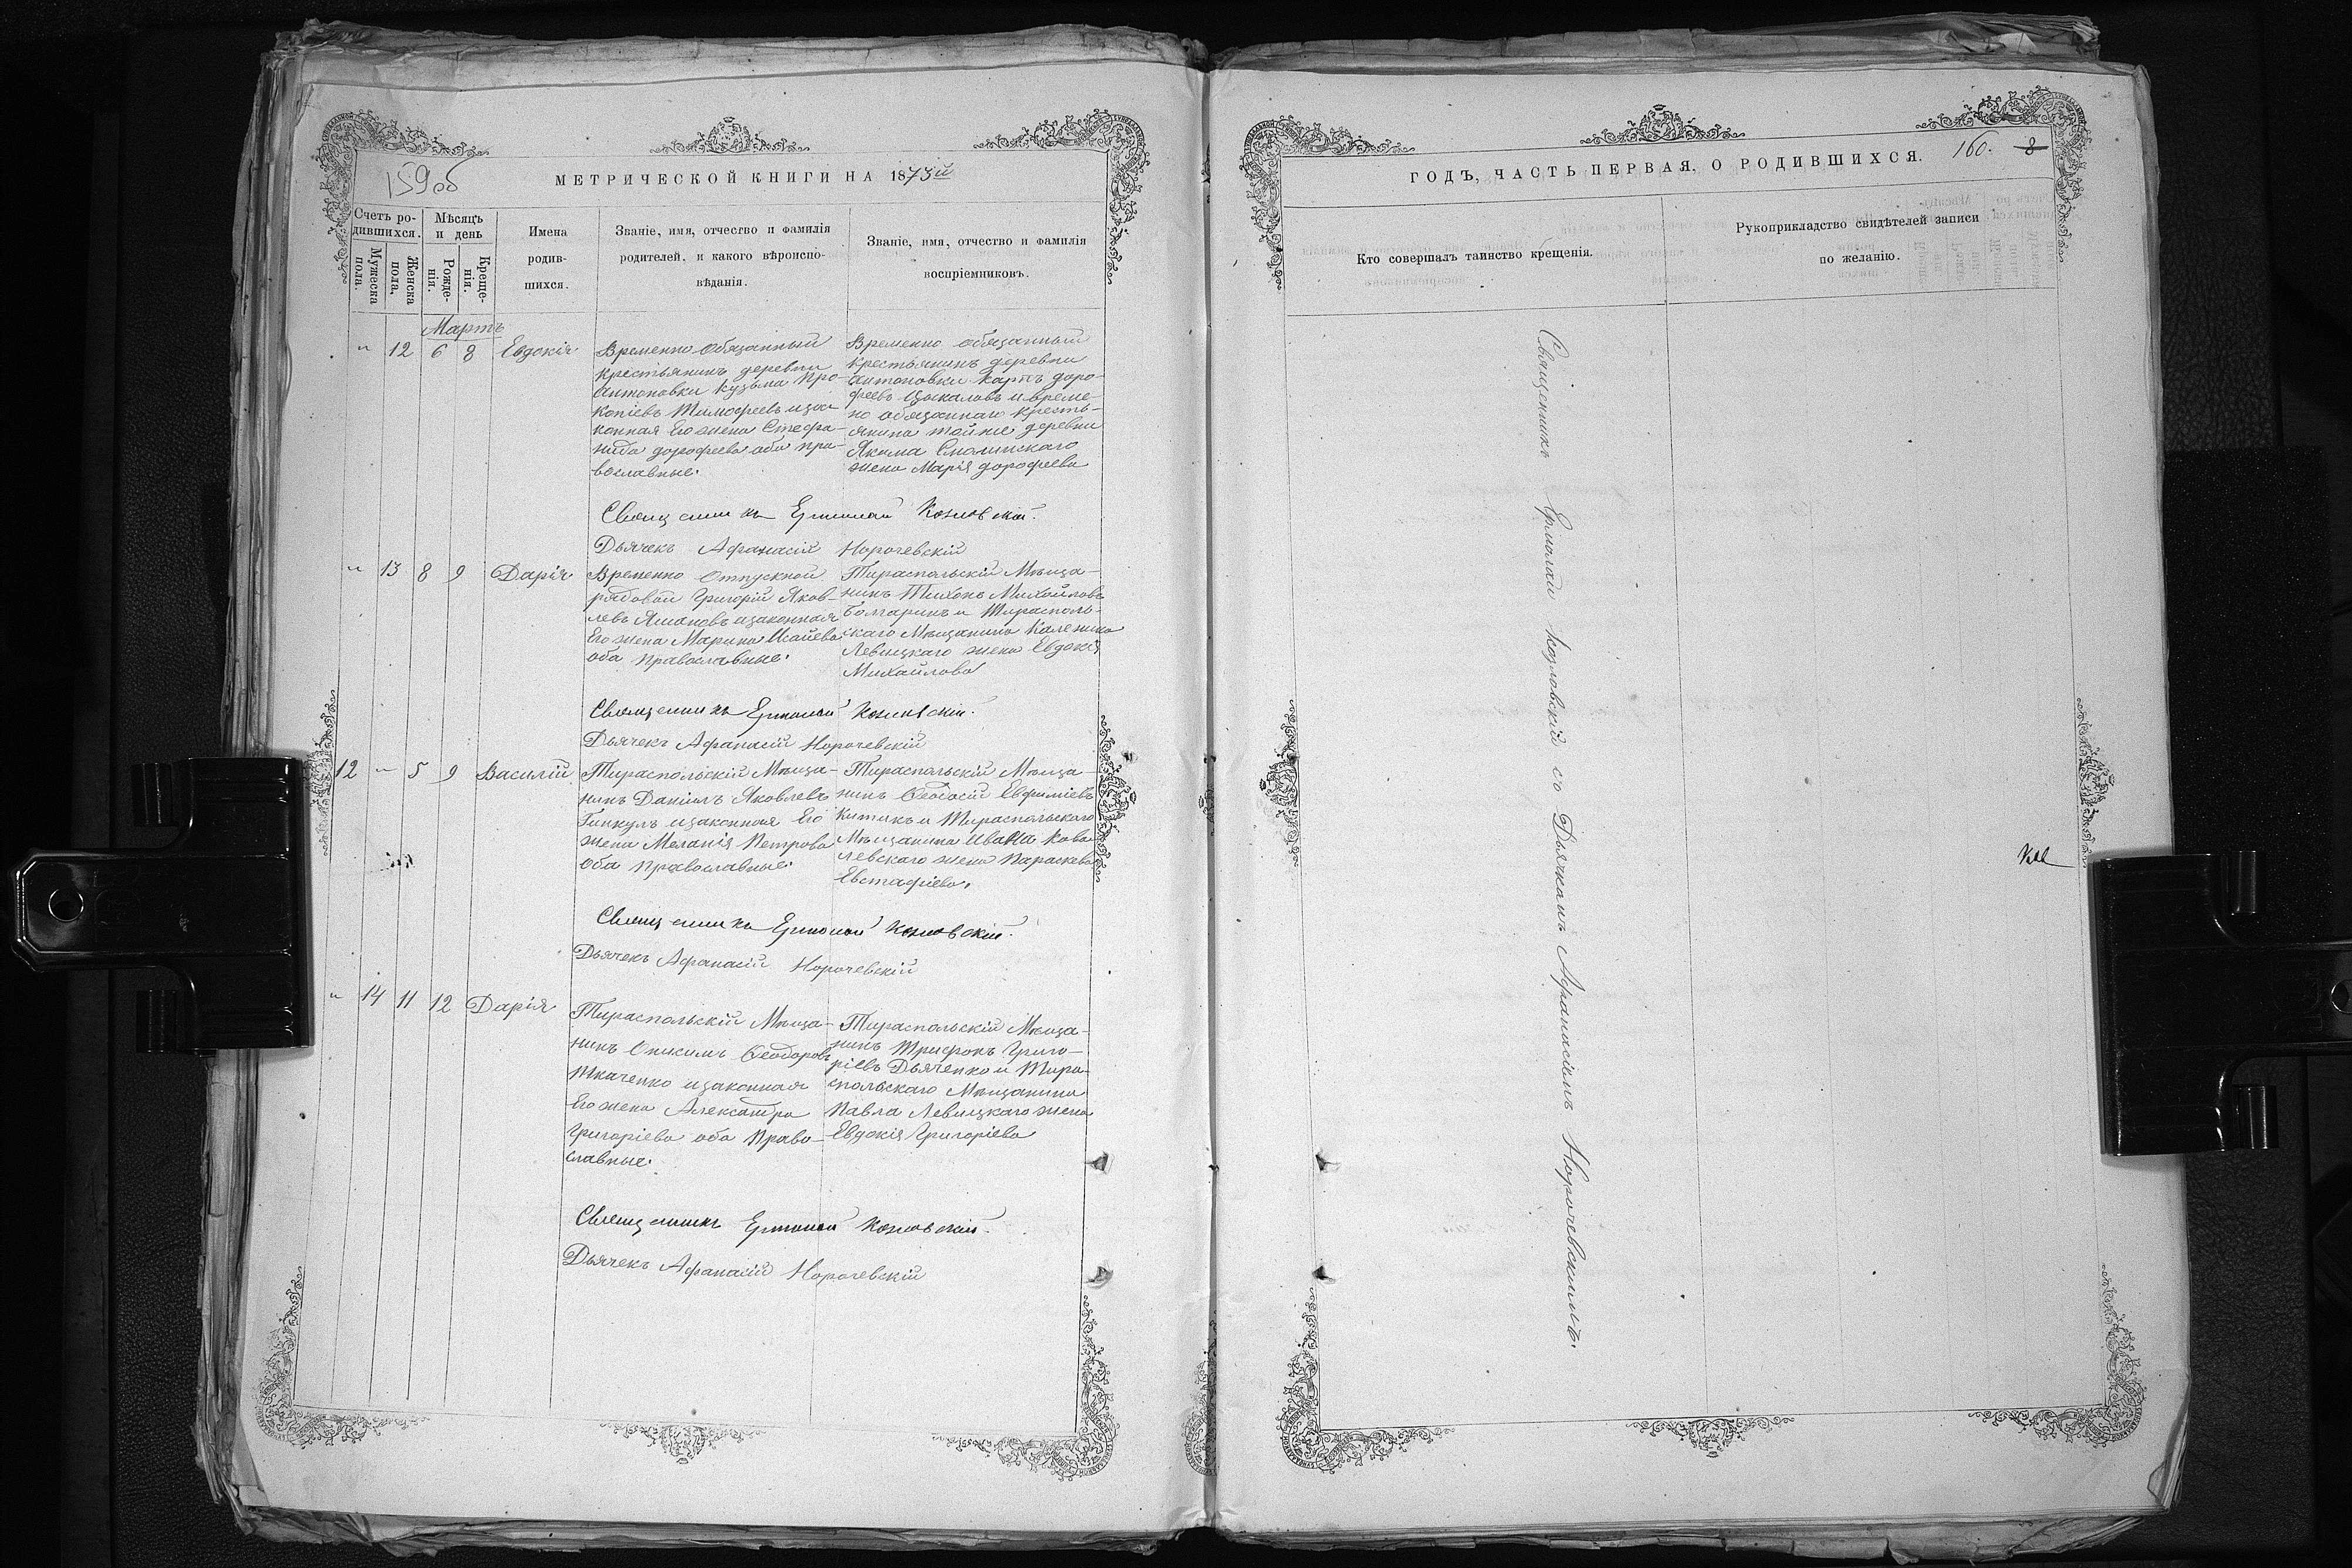 159об
МЕТРИЧЕСКОЙ КНИГИ НА 1873й
Счетъ ро-
дившихся.
Мужеска
пола.
Женска
пола,
Мѣсяцъ
и день
Рожде-
нія.
Креще-
нія.
Имена
родив-
шихся.
Званіе, имя, отчество и фамилія
родителей, и какого вѣроиспо-
вѣданія.
Званіе, имя, отчество и фамилія
воспріемниковъ.
Мартъ
" 12 6 8 Евдокія
Временно Обязанный
крестьянинъ деревни
Антоновки Кузьма Про-
копіевъ Тимофеевъ изза
конная Его жена Стефа-
нида дорофеева оба пра-
вославные.
Временно обязанный
крестьянинъ деревни
Антоновки Карпъ доро-
феевъ Цыкаловъ и време-
но обязаннаго кресть-
янина тойже деревни
Якима Смолинскаго
жена Марія дорофеева
Священникъ Ермолай Козловскій.
Дьячекъ Афанасій Норочевскій
" 13 8 9 Дарія
Временно Отпускной
рядовой Григорій Яков-
левъ Ямановъ изаконная
Его жена Марина Исаиева
оба Православные.
Тираспольскій Мѣща-
нинъ Тихонъ Михайловъ
Болгаринъ и Тирасполь-
скаго Мѣщанина Каленика
Левицкаго жена Евдокія
Михайлова
Священникъ Ермолай Козловскій.
Дьячекъ Афанасій Норочевскій
12 " 5 9 Василій
Тираспольскій Мѣща-
нинъ Даніилъ Яковлевъ
Гинкулъ изаконная Его
жена Меланія Петрова
Оба Православные.
Тираспольскій Мѣща-
нинъ Феодосій Евфиміевъ
Китикъ и Тираспольскаго
Мѣщанина Ивана Кова-
левскаго жена Параскева
Евстафіева.
Священникъ Ермолай Козловскій.
Дьячекъ Афанасій Норочевскій
" 14 11 12 Дарія
Тираспольскій Мѣща-
нинъ Онисимъ Феодоровъ
Ткаченко изаконная
Его жена Александра
Григоріева оба Право-
славные.
Тираспольскій Мѣща-
нинъ Трифонъ Григо-
ріевъ Дьяченко и Тира-
спольскаго Мѣщанина
Павла Левицкаго жена
Евдокія Григоріева
Священникъ Ермолай Козловскій.
Дьячекъ Афанасій Норочевскій
ГОДЪ, ЧАСТЬ ПЕРВАЯ, О РОДИВШИХСЯ.
160. 8
Кто совершалъ таинство крещенія.
Рукоприкладство свидѣтелей записи
по желанію.
Священникъ Ермолай Козловскій съ Дьячкомъ Афанасіемъ Норочевскимъ.